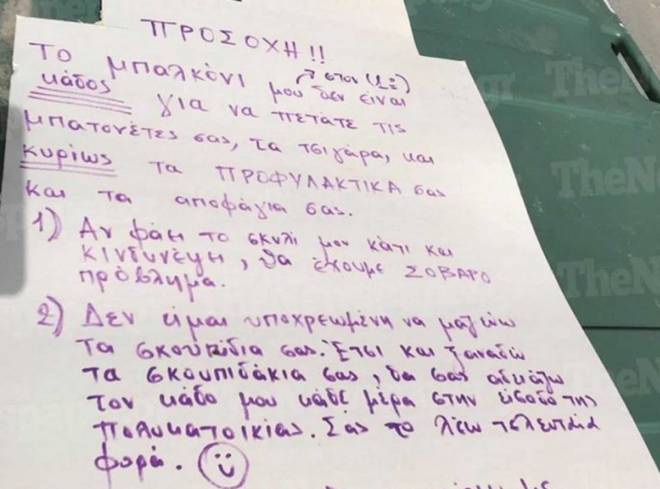 ΠΡΟΣΟΧΗ!!
ΤΟ ΜΠΑΛΚΟΝΙ μου (στον 1ο) δεν είναι
κάδος για να πετάτε τις
μπατονέτες σας, τα τσιγάρα, και
κυρίως τα ΠΡΟΦΥΛΑΚΤΙΚΑ σας
και τα αποφάγια σας.
1) Αν φάει το σκυλί μου κάτι και
κινδυνέψη, θα έχουμε ΣΟΒΑΡΟ
πρόβλημα.
2) Δεν είμαι υποχρεωμένη να μαζεύω
τα σκουπίδια σας. Έτσι και ξαναδώ
τα σκουπιδάκια σας, θα σας αδειάζω
τον κάδο μου κάθε μέρα στην είσοδο της
πολυκατοικίας. Σας το λέω τελευταία
φορά.
TheNe
TheN
The